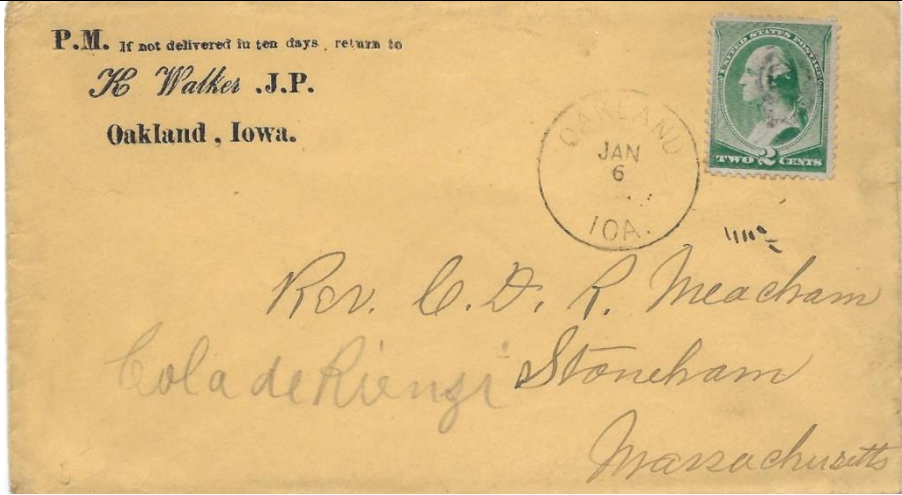 P.M. If not delivered in ten days, return to
H Walker .J.P.
Oakland, Iowa.
UNITED STATES POSTAGE
TWO 2 CENTS
OAKLAND
JAN
6
IOA.
Rev. C. D. R. Meacham
Cola de Rienzi
Stoneham
Massachusetts